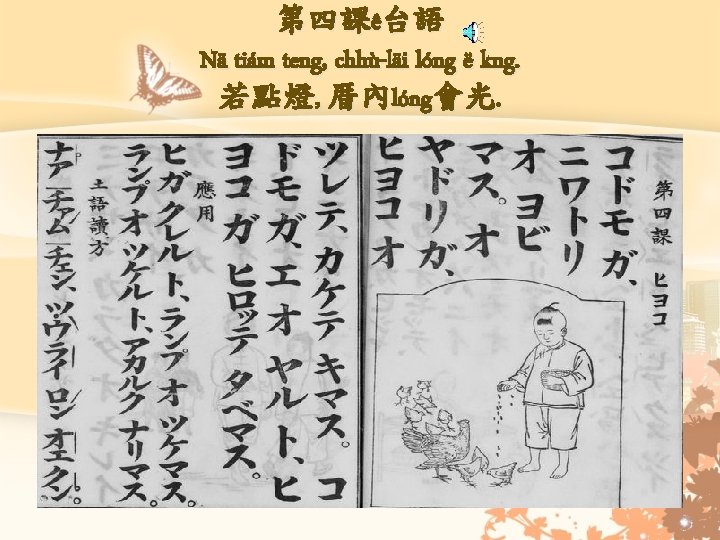 第四課ê台語
Nā tiám teng, chhù-lāi lóng ē kng.
若點燈, 厝內lóng會光.
第四課 ヒヨコ
コドモ ガ、
ニワトリ
オ ヨビ
マス。オ
ヤドリ ガ、
ヒヨコ オ
ツレテ、カケテ キマス。コ
ドモ ガ、エ オ ヤルト、ヒ
ヨコ ガ ヒロッテ タベマス。
應用
ヒ ガ クレルト、ランプ オ ツケマス。
ランプ オ ツケルト、アカルク ナリマス。
土語讀方
ナア チアム チェン、ツウ ライ ロン オエ クン。